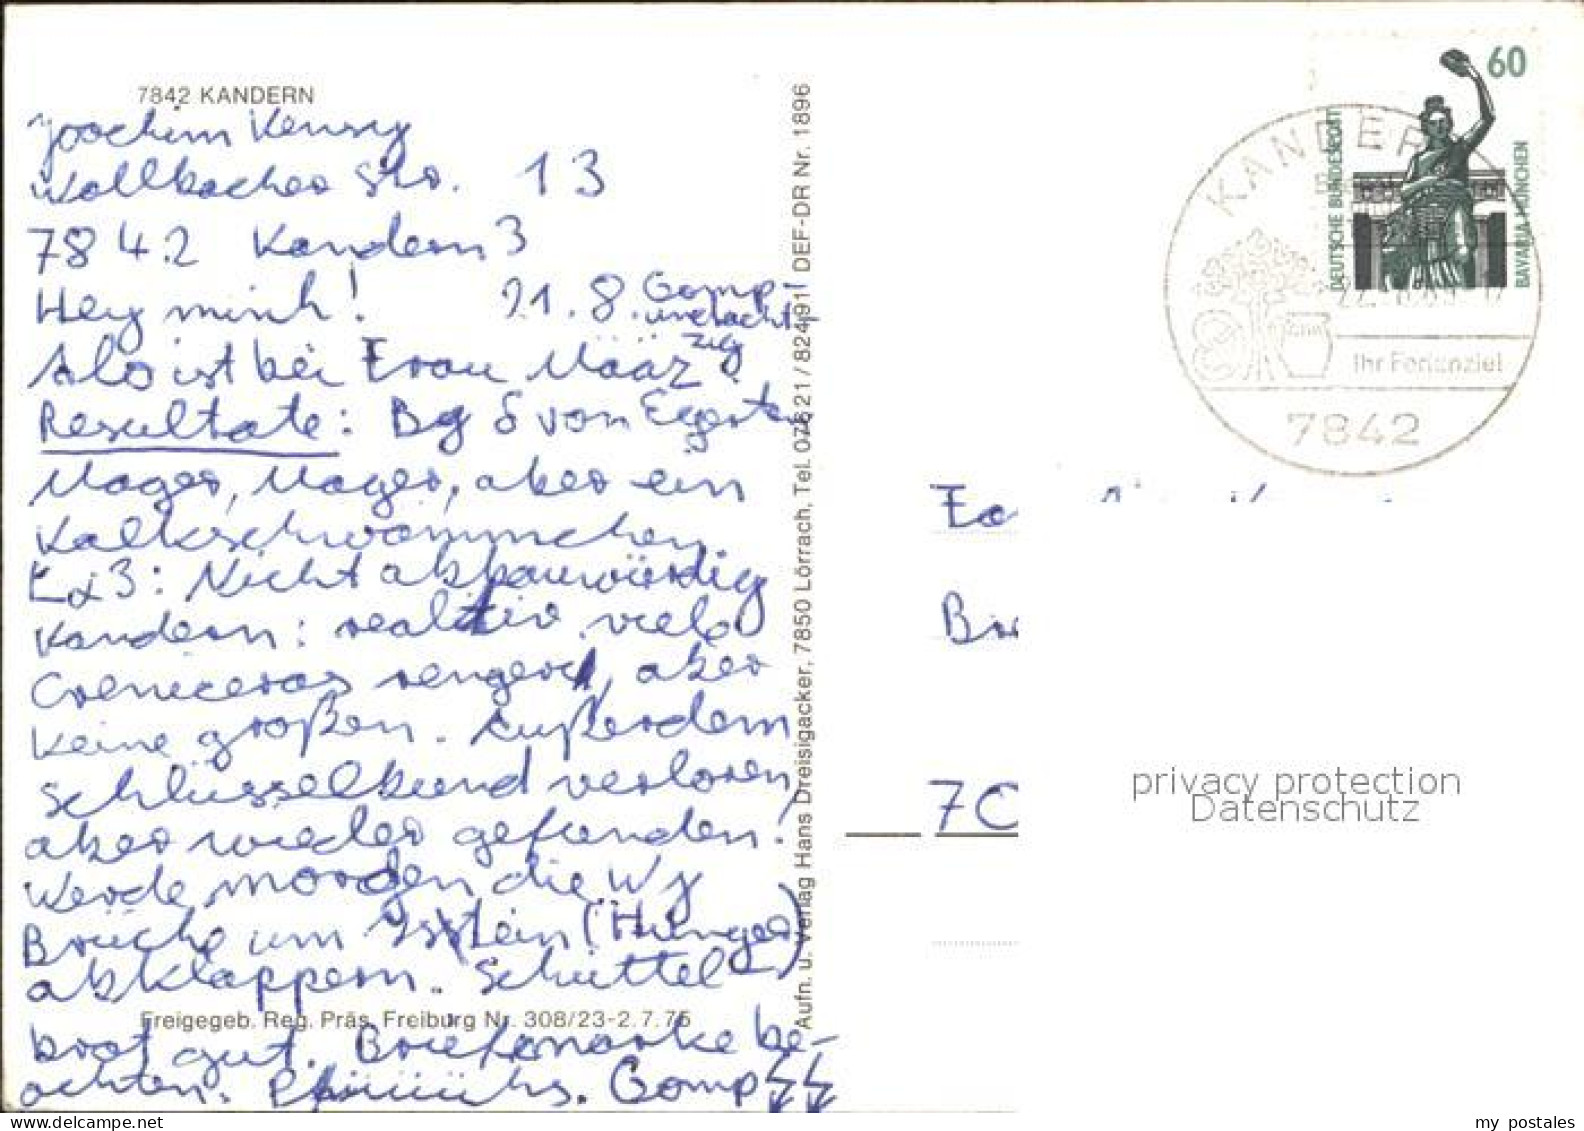 7842 KANDERN
Joachim
Wollbacher Str. 13
7842 Kandern 3
Hey minh! 21.8. Gomp-
und acht-
zig
Also ist bei Frau Määz
Resultate: Bg δ von Egerten
Mager, Mager, aber ein
Kalkschwämmchen.
3: Nicht abbauwürdig
Kandern: realitiv viele
Creniceras rengeri, aber
keine großen. Außerdem
Schlüsselbund verloren,
aber wieder gefunden!
Werde morgen die
Brüche um Istein (Hunger)
abklappern. Schüttel-
Freigegeb. Reg. Präs. Freiburg Nr. 308/23-2.7.75
brot gut. Briefmarke be-
achten. Pfüüüüüs. Gomp
Aufn. u. Verlag Hans Dreisigacker, 7850 Lörrach, Tel. 07621/82491 DEF-DR Nr. 1896
60
DEUTSCHE BUNDESPOST
BAVARIA MÜNCHEN
KANDER
Ihr Ferienziel
7842
privacy protection
Datenschutz
my postales